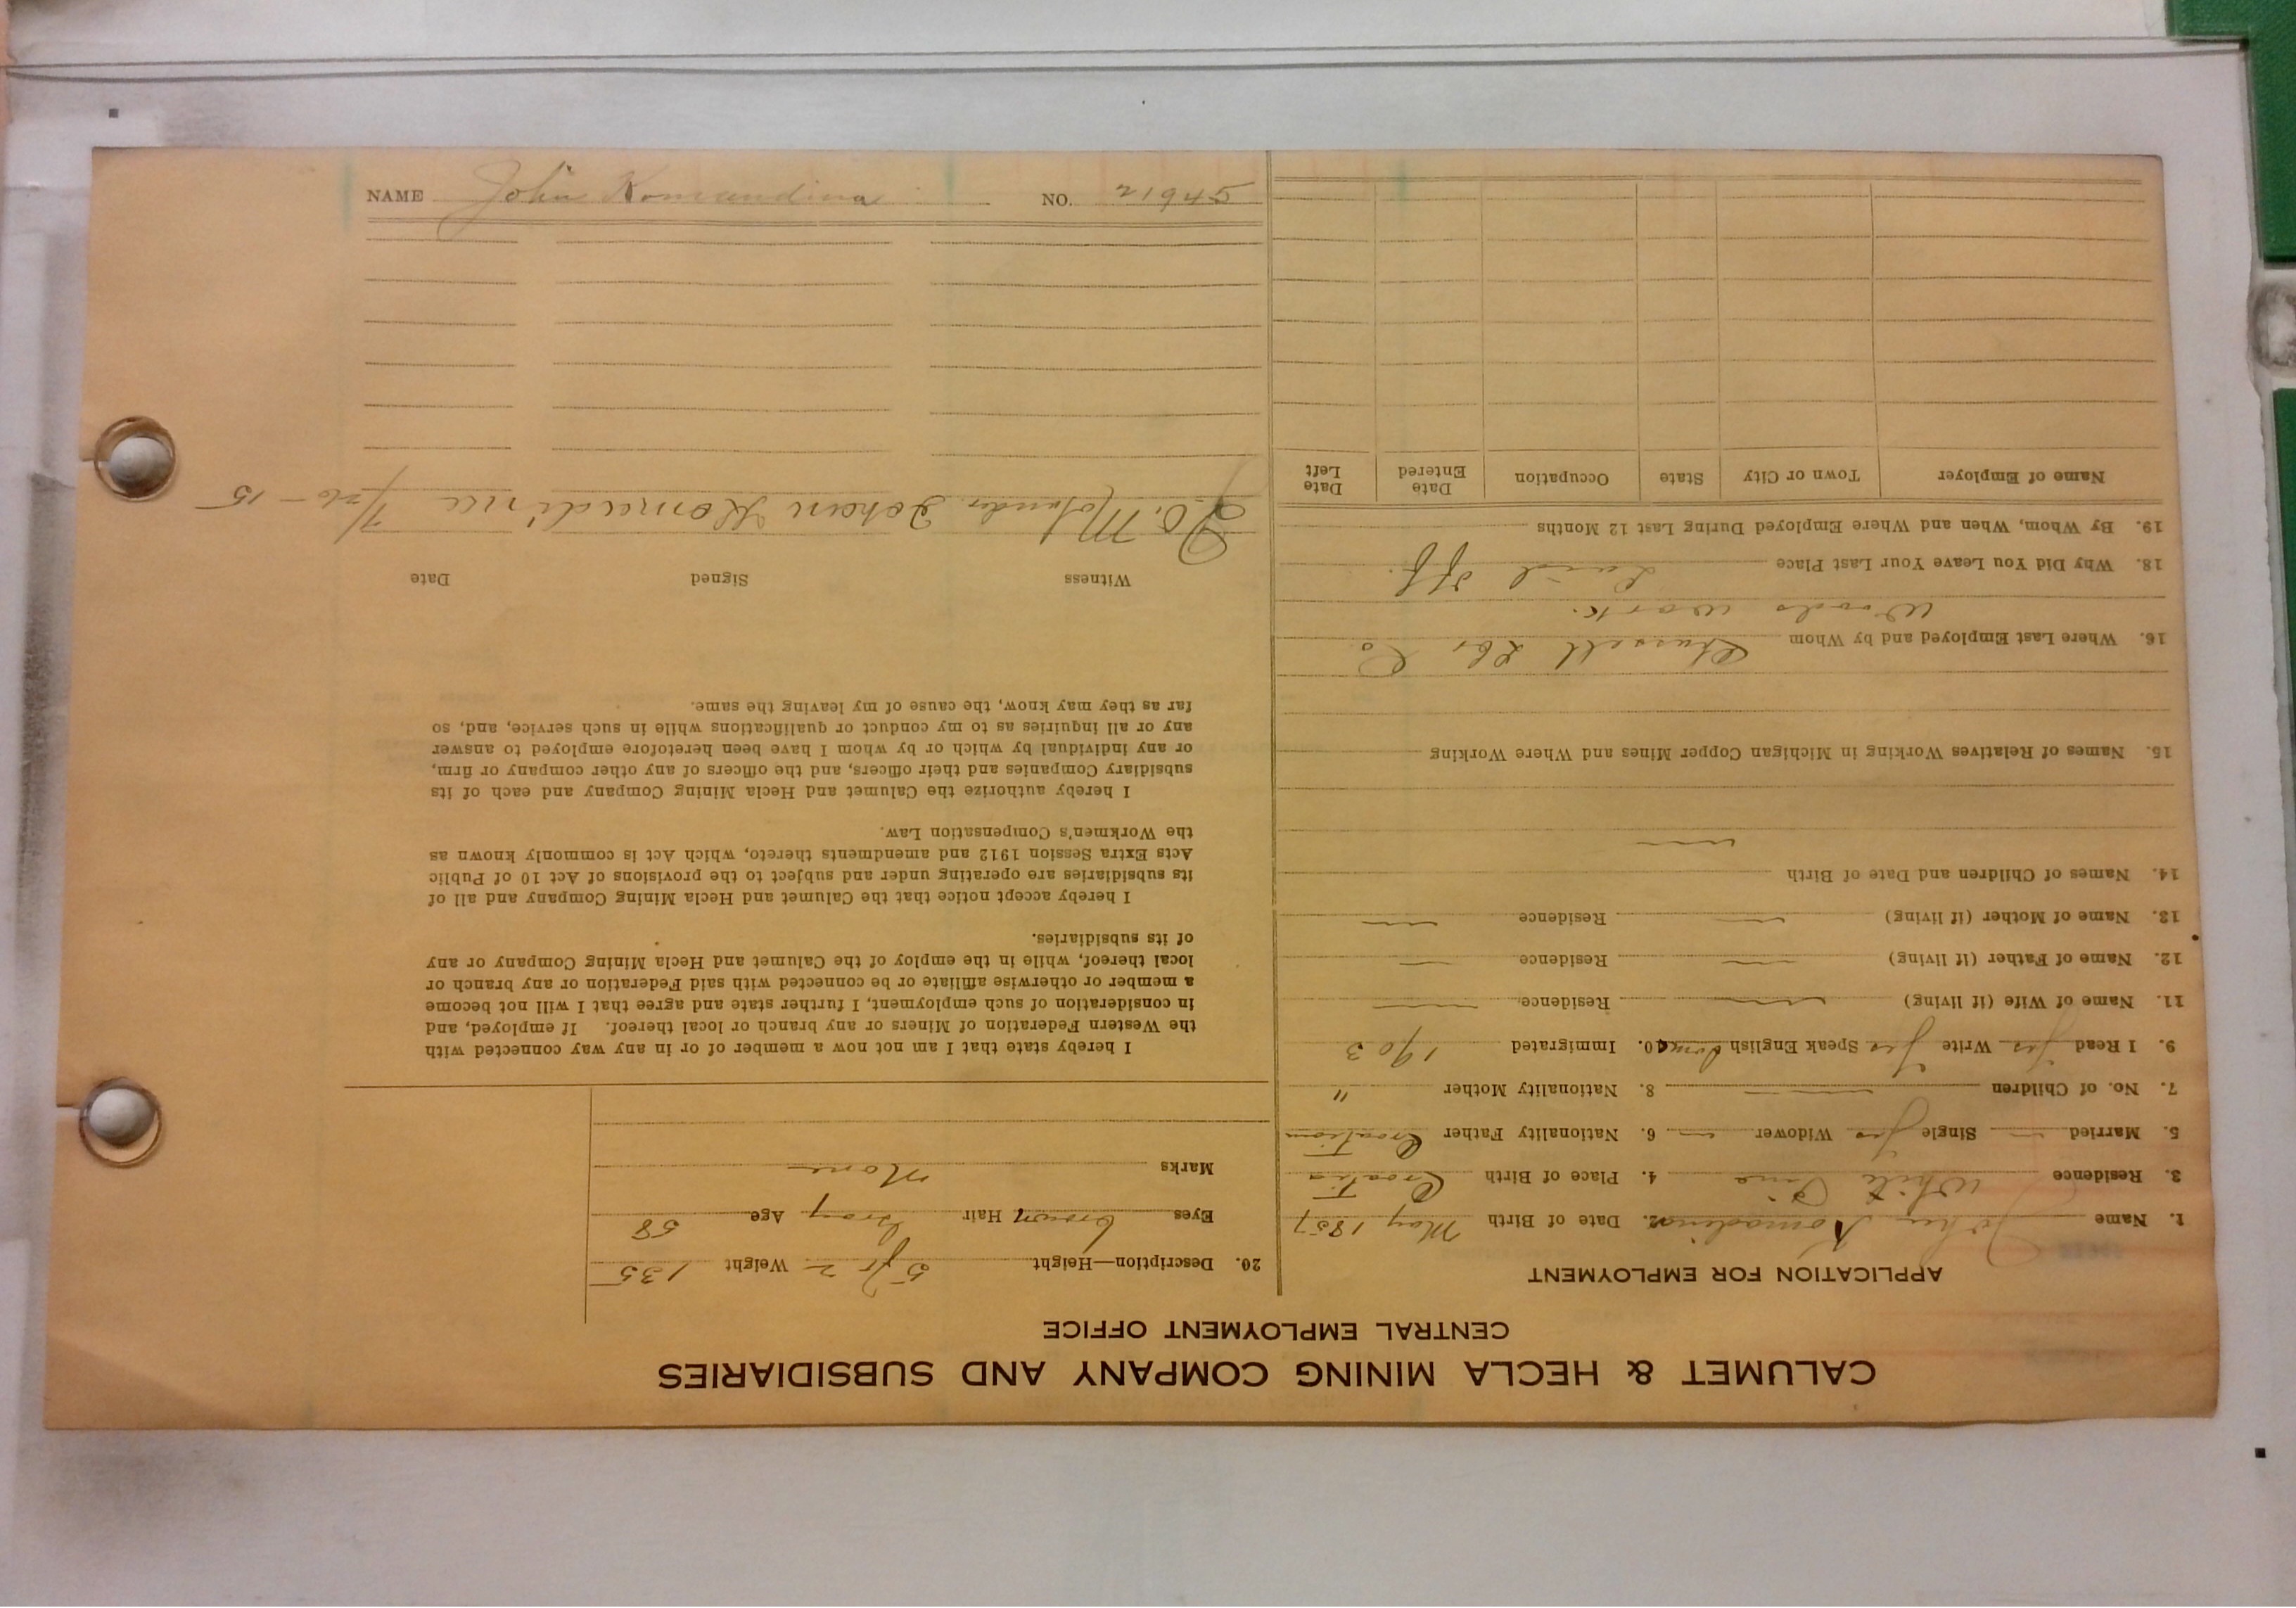 CALUMET & HECLA MINING COMPANY AND SUBSIDIARIES
CENTRAL EMPLOYMENT OFFICE
APPLICATION FOR EMPLOYMENT
1. Name John Komadina 2. Date of Birth May 1857
3. Residence White Pine 4. Place of Birth Croatia
5. Married — Single yes Widower — 6. Nationality Father Croatian
7. No. of Children — 8. Nationality Mother "
9. I Read yes Write yes Speak English some 10. Immigrated 1903
11. Name of Wife (if living) — Residence —
12. Name of Father (if living) — Residence —
13. Name of Mother (if living) — Residence —
14. Names of Children and Date of Birth
—
15. Names of Relatives Working in Michigan Copper Mines and Where Working
16. Where Last Employed and by Whom Lbr Co
Woods work.
18. Why Did You Leave Your Last Place Laid off.
19. By Whom, When and Where Employed During Last 12 Months
Name of Employer Town or City State Occupation Date Entered Date Left
20. Description—Height 5 ft 2 Weight 135
Eyes brown Hair gray Age 58
Marks None
I hereby state that I am not now a member of or in any way connected with
the Western Federation of Miners or any branch or local thereof. If employed, and
in consideration of such employment, I further state and agree that I will not become
a member or otherwise affiliate or be connected with said Federation or any branch or
local thereof, while in the employ of the Calumet and Hecla Mining Company or any
of its subsidiaries.
I hereby accept notice that the Calumet and Hecla Mining Company and all of
its subsidiaries are operating under and subject to the provisions of Act 10 of Public
Acts Extra Session 1912 and amendments thereto, which Act is commonly known as
the Workmen's Compensation Law.
I hereby authorize the Calumet and Hecla Mining Company and each of its
subsidiary Companies and their officers, and the officers of any other company or firm,
or any individual by which or by whom I have been heretofore employed to answer
any or all inquiries as to my conduct or qualifications while in such service, and, so
far as they may know, the cause of my leaving the same.
Witness Signed Date
Johan Komadina 7/26-15
NAME John Komandina NO. 21945